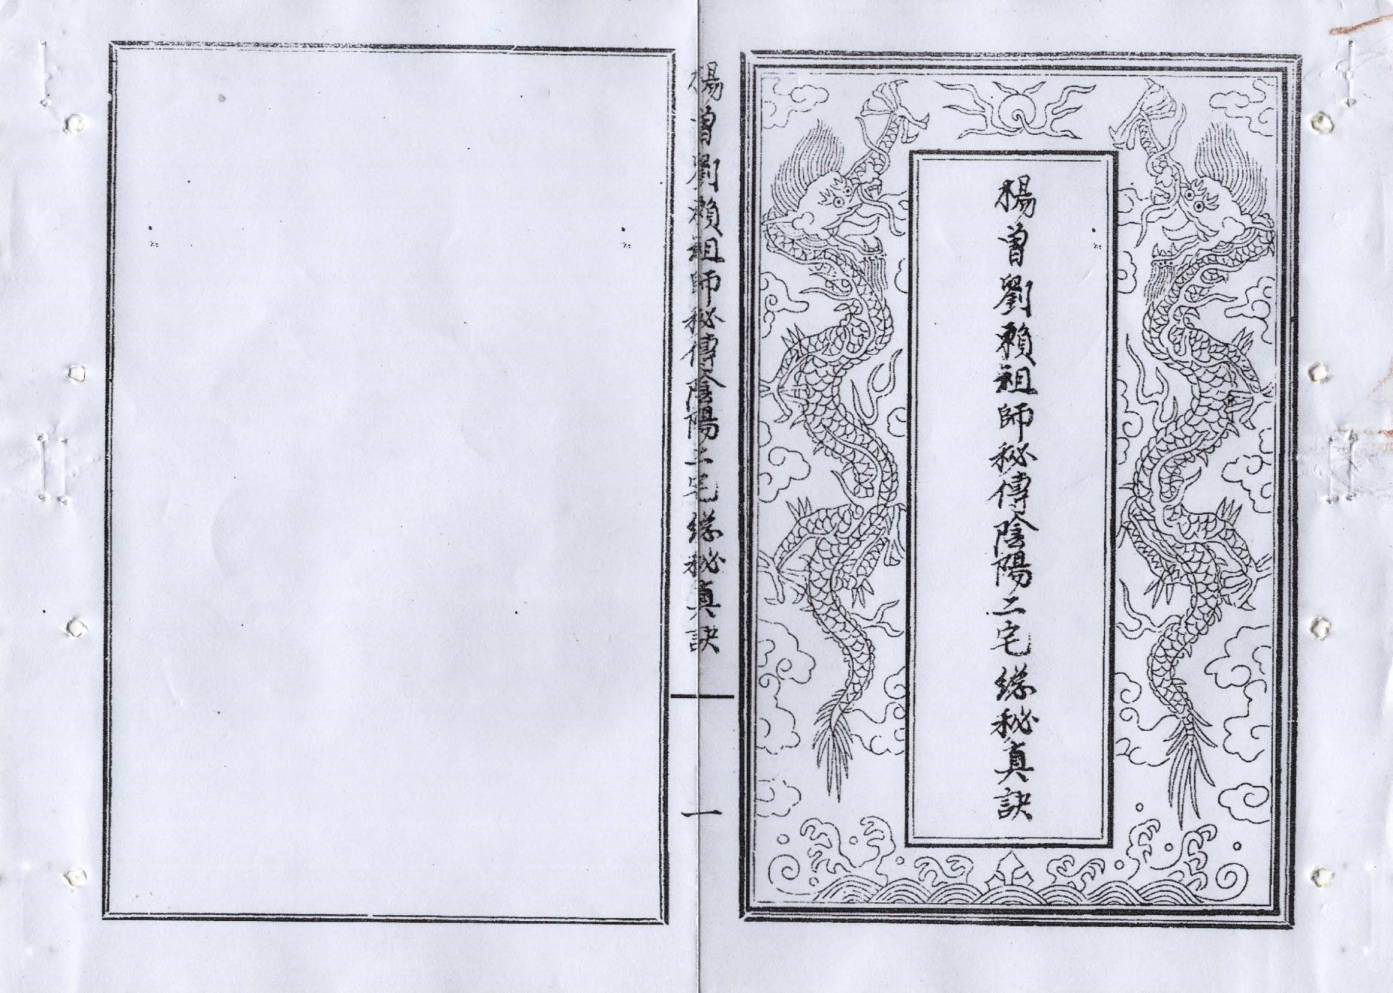 楊曾劉賴祖師秘傳陰陽二宅總秘真訣
楊曾劉賴祖師秘傳陰陽二宅總秘真訣
一